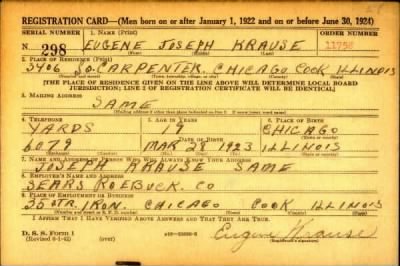 REGISTRATION CARD—(Men born on or after January 1, 1922 and on or before June 30, 1924)
SERIAL NUMBER 1. NAME (Print) ORDER NUMBER
N 298 EUGENE JOSEPH KRAUSE 11758
(First) (Middle) (Last)
2. PLACE OF RESIDENCE (Print)
5406 SO. CARPENTER. CHICAGO COOK ILLINOIS
(Number and street) (Town, township, village, or city) (County) (State)
[THE PLACE OF RESIDENCE GIVEN ON THE LINE ABOVE WILL DETERMINE LOCAL BOARD
JURISDICTION; LINE 2 OF REGISTRATION CERTIFICATE WILL BE IDENTICAL]
3. MAILING ADDRESS
SAME
[Mailing address if other than place indicated on line 2. If same insert word same]
4. TELEPHONE 5. AGE IN YEARS 6. PLACE OF BIRTH
YARDS 19 CHICAGO
DATE OF BIRTH
6079 MAR 28 1923 ILLINOIS
7. NAME AND ADDRESS OF PERSON WHO WILL ALWAYS KNOW YOUR ADDRESS
JOSEPH KRAUSE SAME
8. EMPLOYER'S NAME AND ADDRESS
SEARS ROEBUCK. CO
9. PLACE OF EMPLOYMENT OR BUSINESS
35 STR. IRON. CHICAGO COOK ILLINOIS
(Number and street or R. F. D. number) (Town) (County) (State)
I AFFIRM THAT I HAVE VERIFIED ABOVE ANSWERS AND THAT THEY ARE TRUE.
D. S. S. Form 1
(Revised 6-1-42) (over) Eugene Krause
(Registrant's signature)